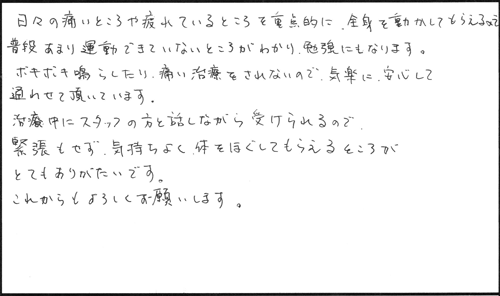 日々の痛いところや疲れているところを重点的に、全身を動かしてもらえるので
普段あまり運動できていないところがわかり、勉強にもなります。
ボキボキ鳴らしたり、痛い治療をされないので、気楽に、安心して
通わせて頂いています。
治療中にスタッフの方と話しながら受けられるので、
緊張もせず、気持ちよく、体をほぐしてもらえるところが
とてもありがたいです。
これからもよろしくお願いします。